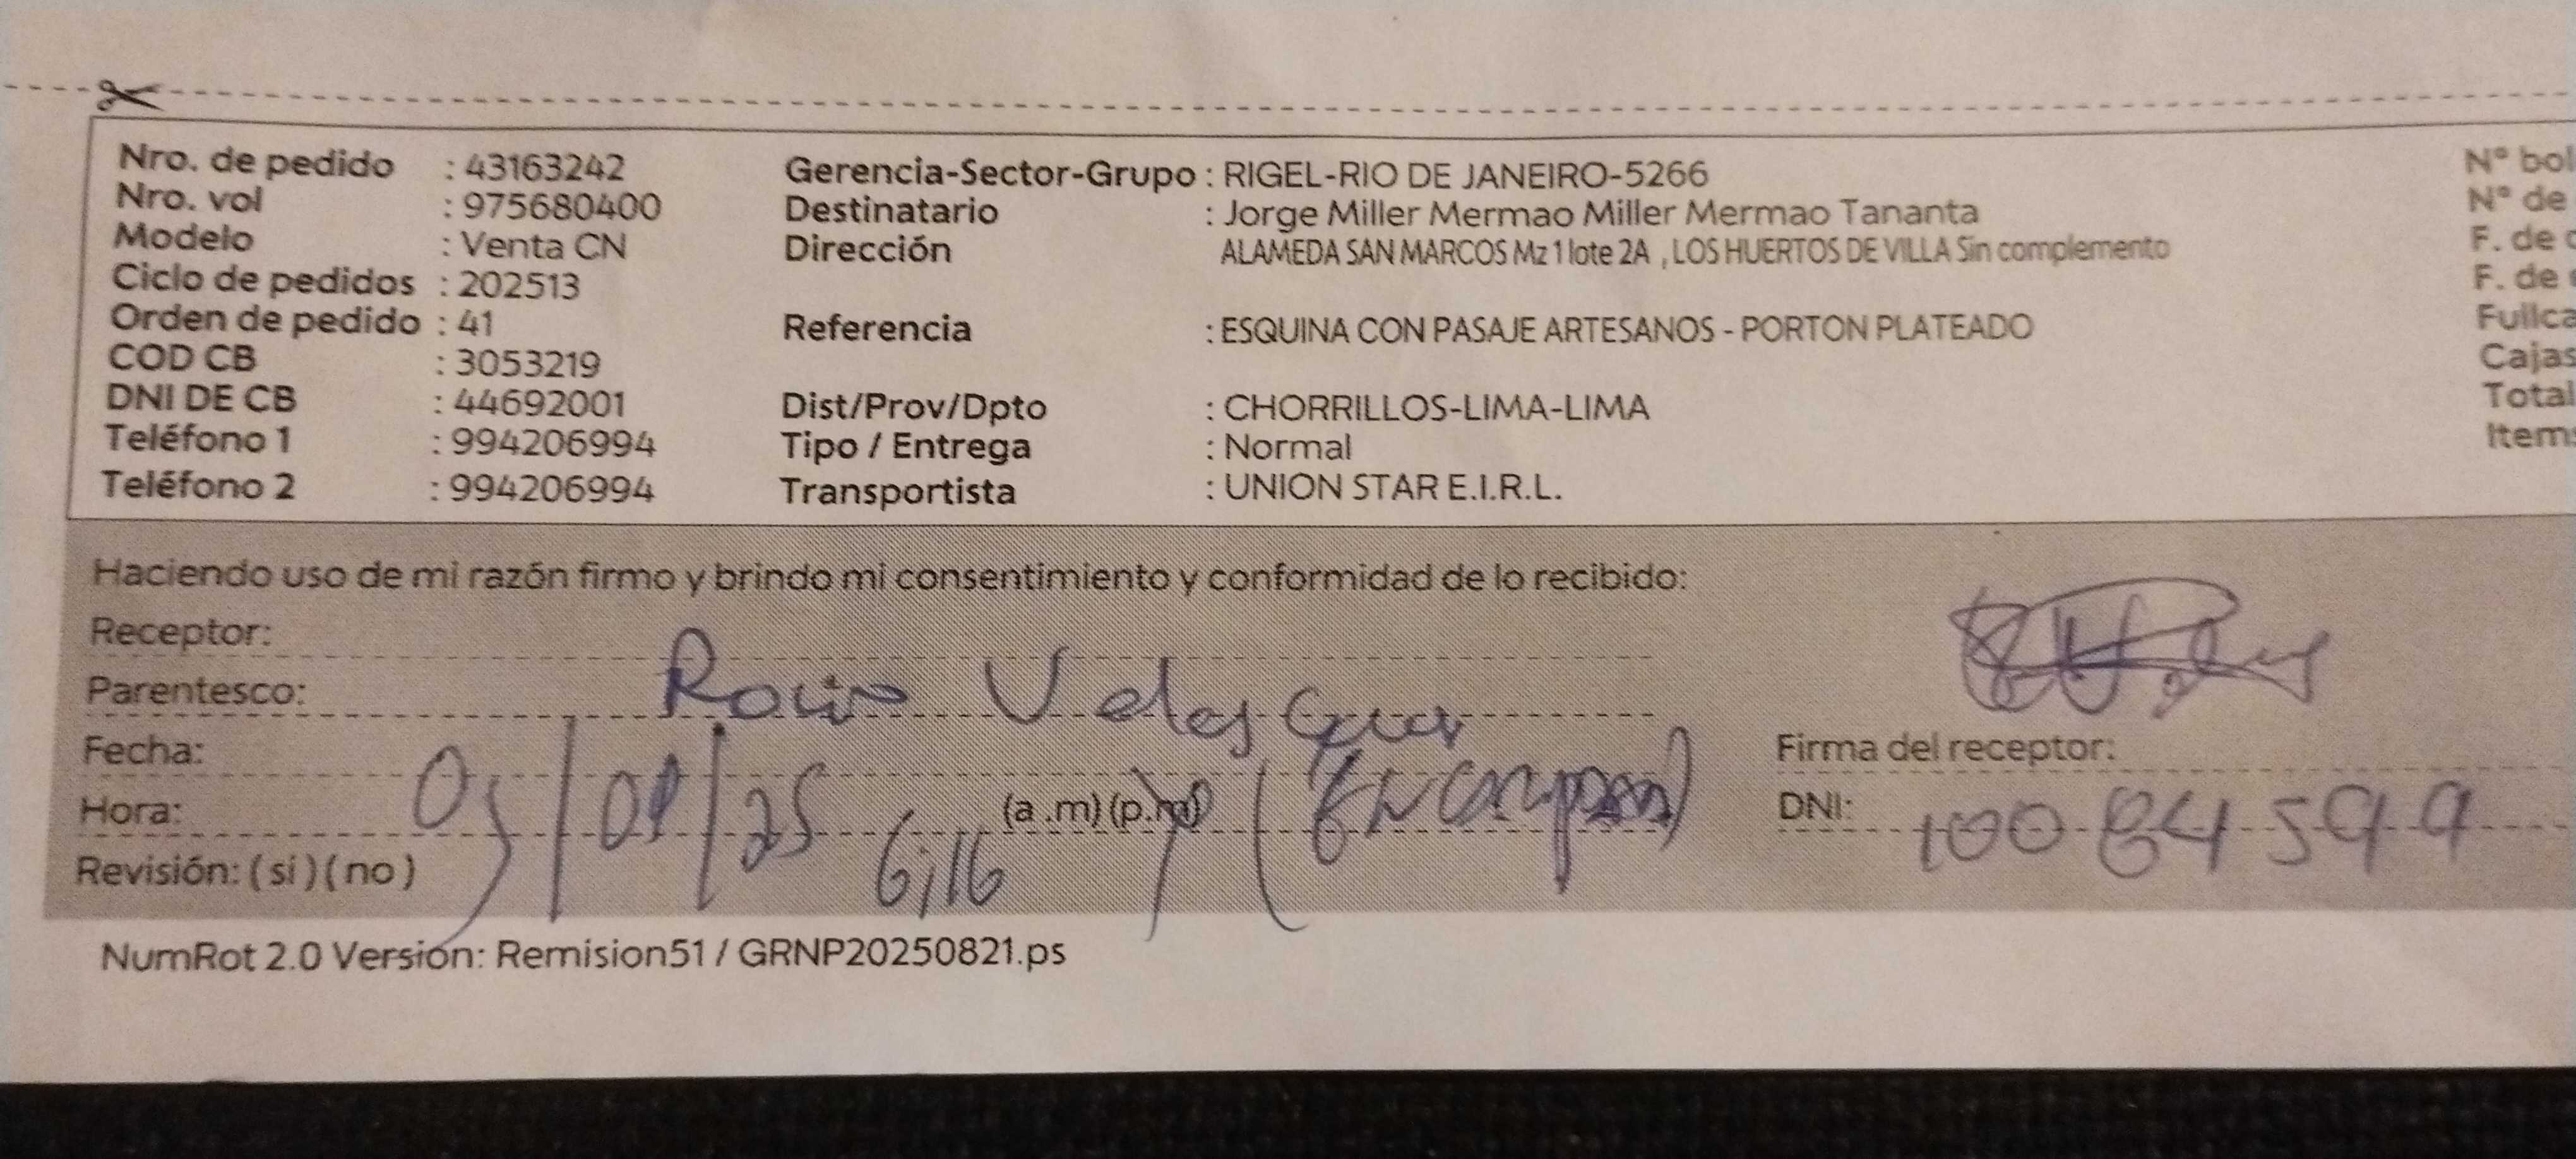 Nro. de pedido : 43163242 Gerencia-Sector-Grupo : RIGEL-RIO DE JANEIRO-5266 N° bol
Nro. vol : 975680400 Destinatario : Jorge Miller Mermao Miller Mermao Tananta N° de
Modelo : Venta CN Dirección ALAMEDA SAN MARCOS Mz 1 lote 2A , LOS HUERTOS DE VILLA Sin complemento F. de
Ciclo de pedidos : 202513 F. de
Orden de pedido : 41 Referencia : ESQUINA CON PASAJE ARTESANOS - PORTON PLATEADO Fullca
COD CB : 3053219 Cajas
DNI DE CB : 44692001 Dist/Prov/Dpto : CHORRILLOS-LIMA-LIMA Total
Teléfono 1 : 994206994 Tipo / Entrega : Normal Items
Teléfono 2 : 994206994 Transportista : UNION STAR E.I.R.L.
Haciendo uso de mi razón firmo y brindo mi consentimiento y conformidad de lo recibido:
Receptor:
Parentesco: Rocio
Fecha: Firma del receptor:
Hora: (a .m) (p.m) DNI: 10084599
Revisión: ( si ) ( no ) 6:16
NumRot 2.0 Versión: Remision51 / GRNP20250821.ps